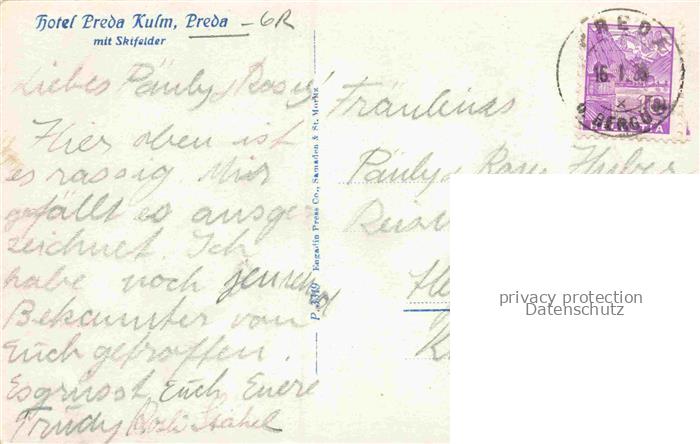 Hotel Preda Kulm, Preda - GR
mit Skifelder
Liebes Pauly, Rosy!
Hier oben ist
es rassig Mir
gefällt es ausge
zeichnet. Ich
habe noch
Bekannter von
Euch getroffen.
Es grüsst Euch Euere
Trudy
P 3319 Engadin Press Co., Samaden & St. Moritz
PREDA
16.1.
BERGÜN
10
Fräuleins
Pauly, Rosy Huber
privacy protection
Datenschutz